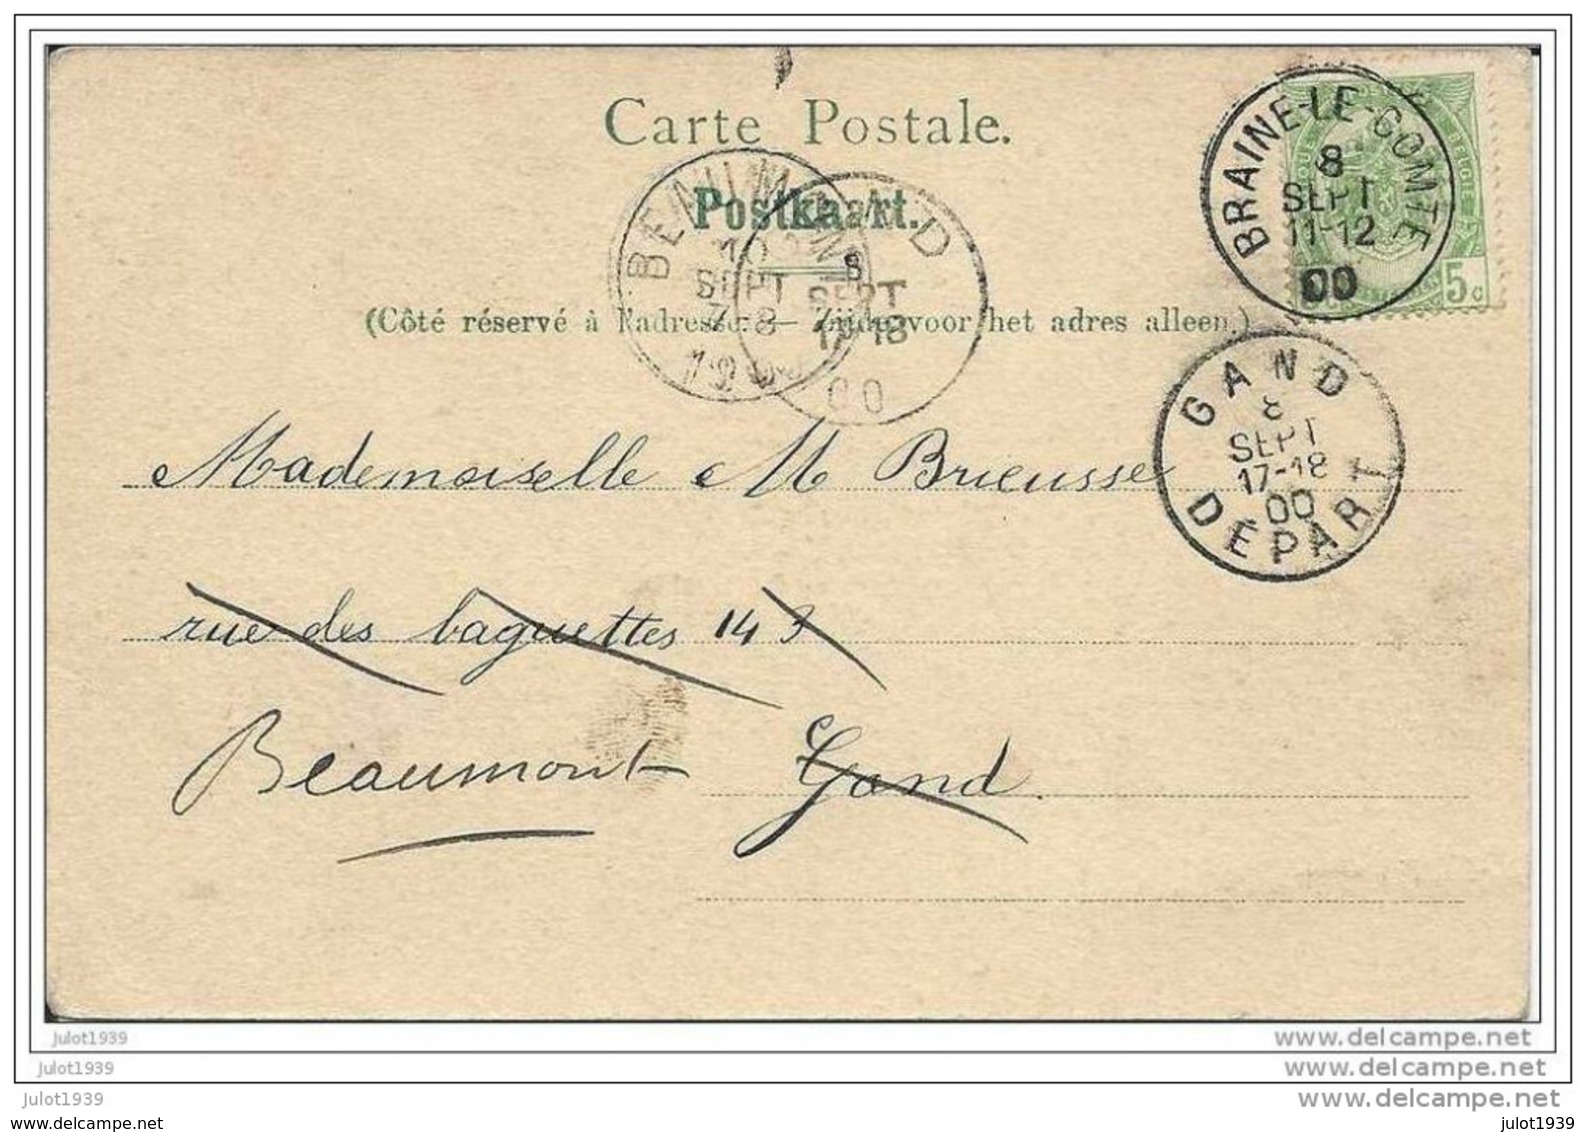 Carte Postale.
Postkaart.
(Côté réservé à l'adresse. — Zijde voor het adres alleen.)
BRAINE-LE-COMTE
8
SEPT
11-12
00
5c
BEAUMONT
10
SEPT
7-8
GAND
8
SEPT
17-18
00
GAND
8
SEPT
17-18
00
DEPART
Mademoiselle M Brieusse
rue des baguettes 143
Beaumont Gand.
julot1939
www.delcampe.net
julot1939
www.delcampe.net
julot1939
www.delcampe.net
julot1939
julot1939